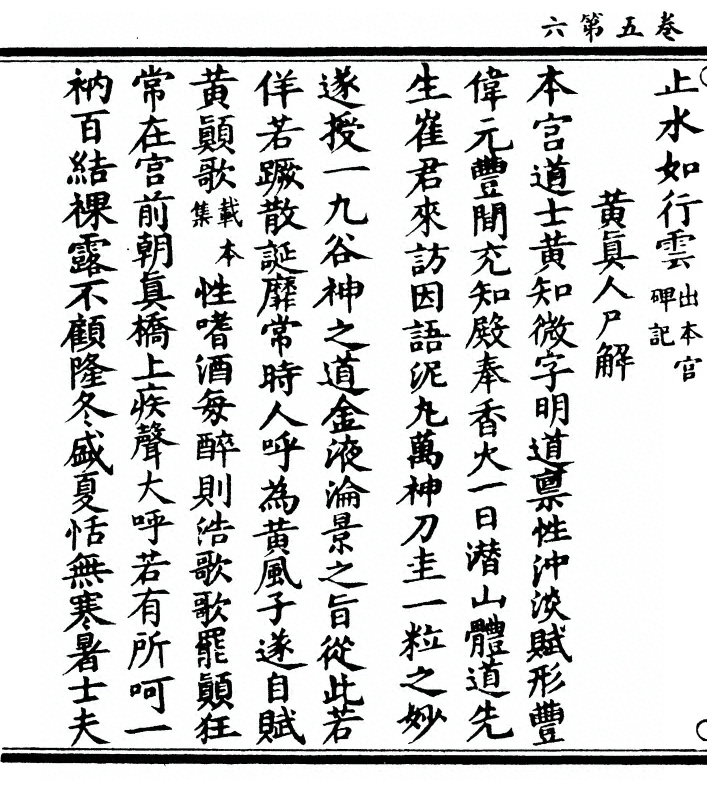 卷五第六
止水如行雲出本宫碑記
黃眞人尸解
本宫道士黃知微字明道禀性沖淡賦形豐
偉元豐間充知殿奉香火一日潜山體道先
生崔君來訪因語泥丸萬神刀圭一粒之妙
遂授一九谷神之道金液淪景之旨從此若
佯若蹶散誕靡常時人呼為黃風子遂自賦
黃顚歌載本集性嗜酒每醉則浩歌歌罷顚狂
常在宫前朝眞橋上疾聲大呼若有所呵一
衲百結裸露不顧隆冬盛夏恬無寒暑士夫